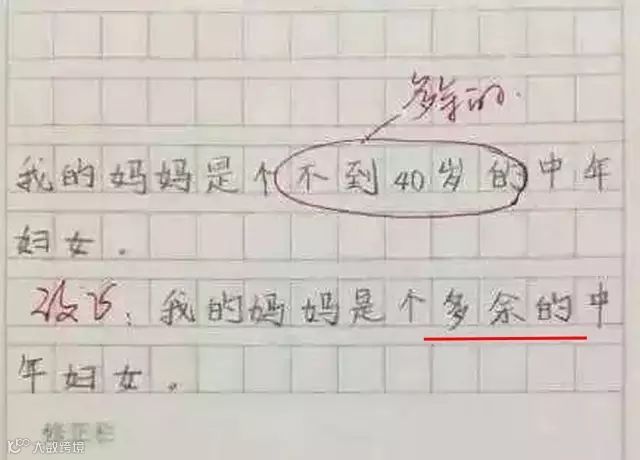 多余的.
我的妈妈是个不到40岁的中年
妇女.
改巧:我的妈妈是个多余的中
年妇女.
大数跨境